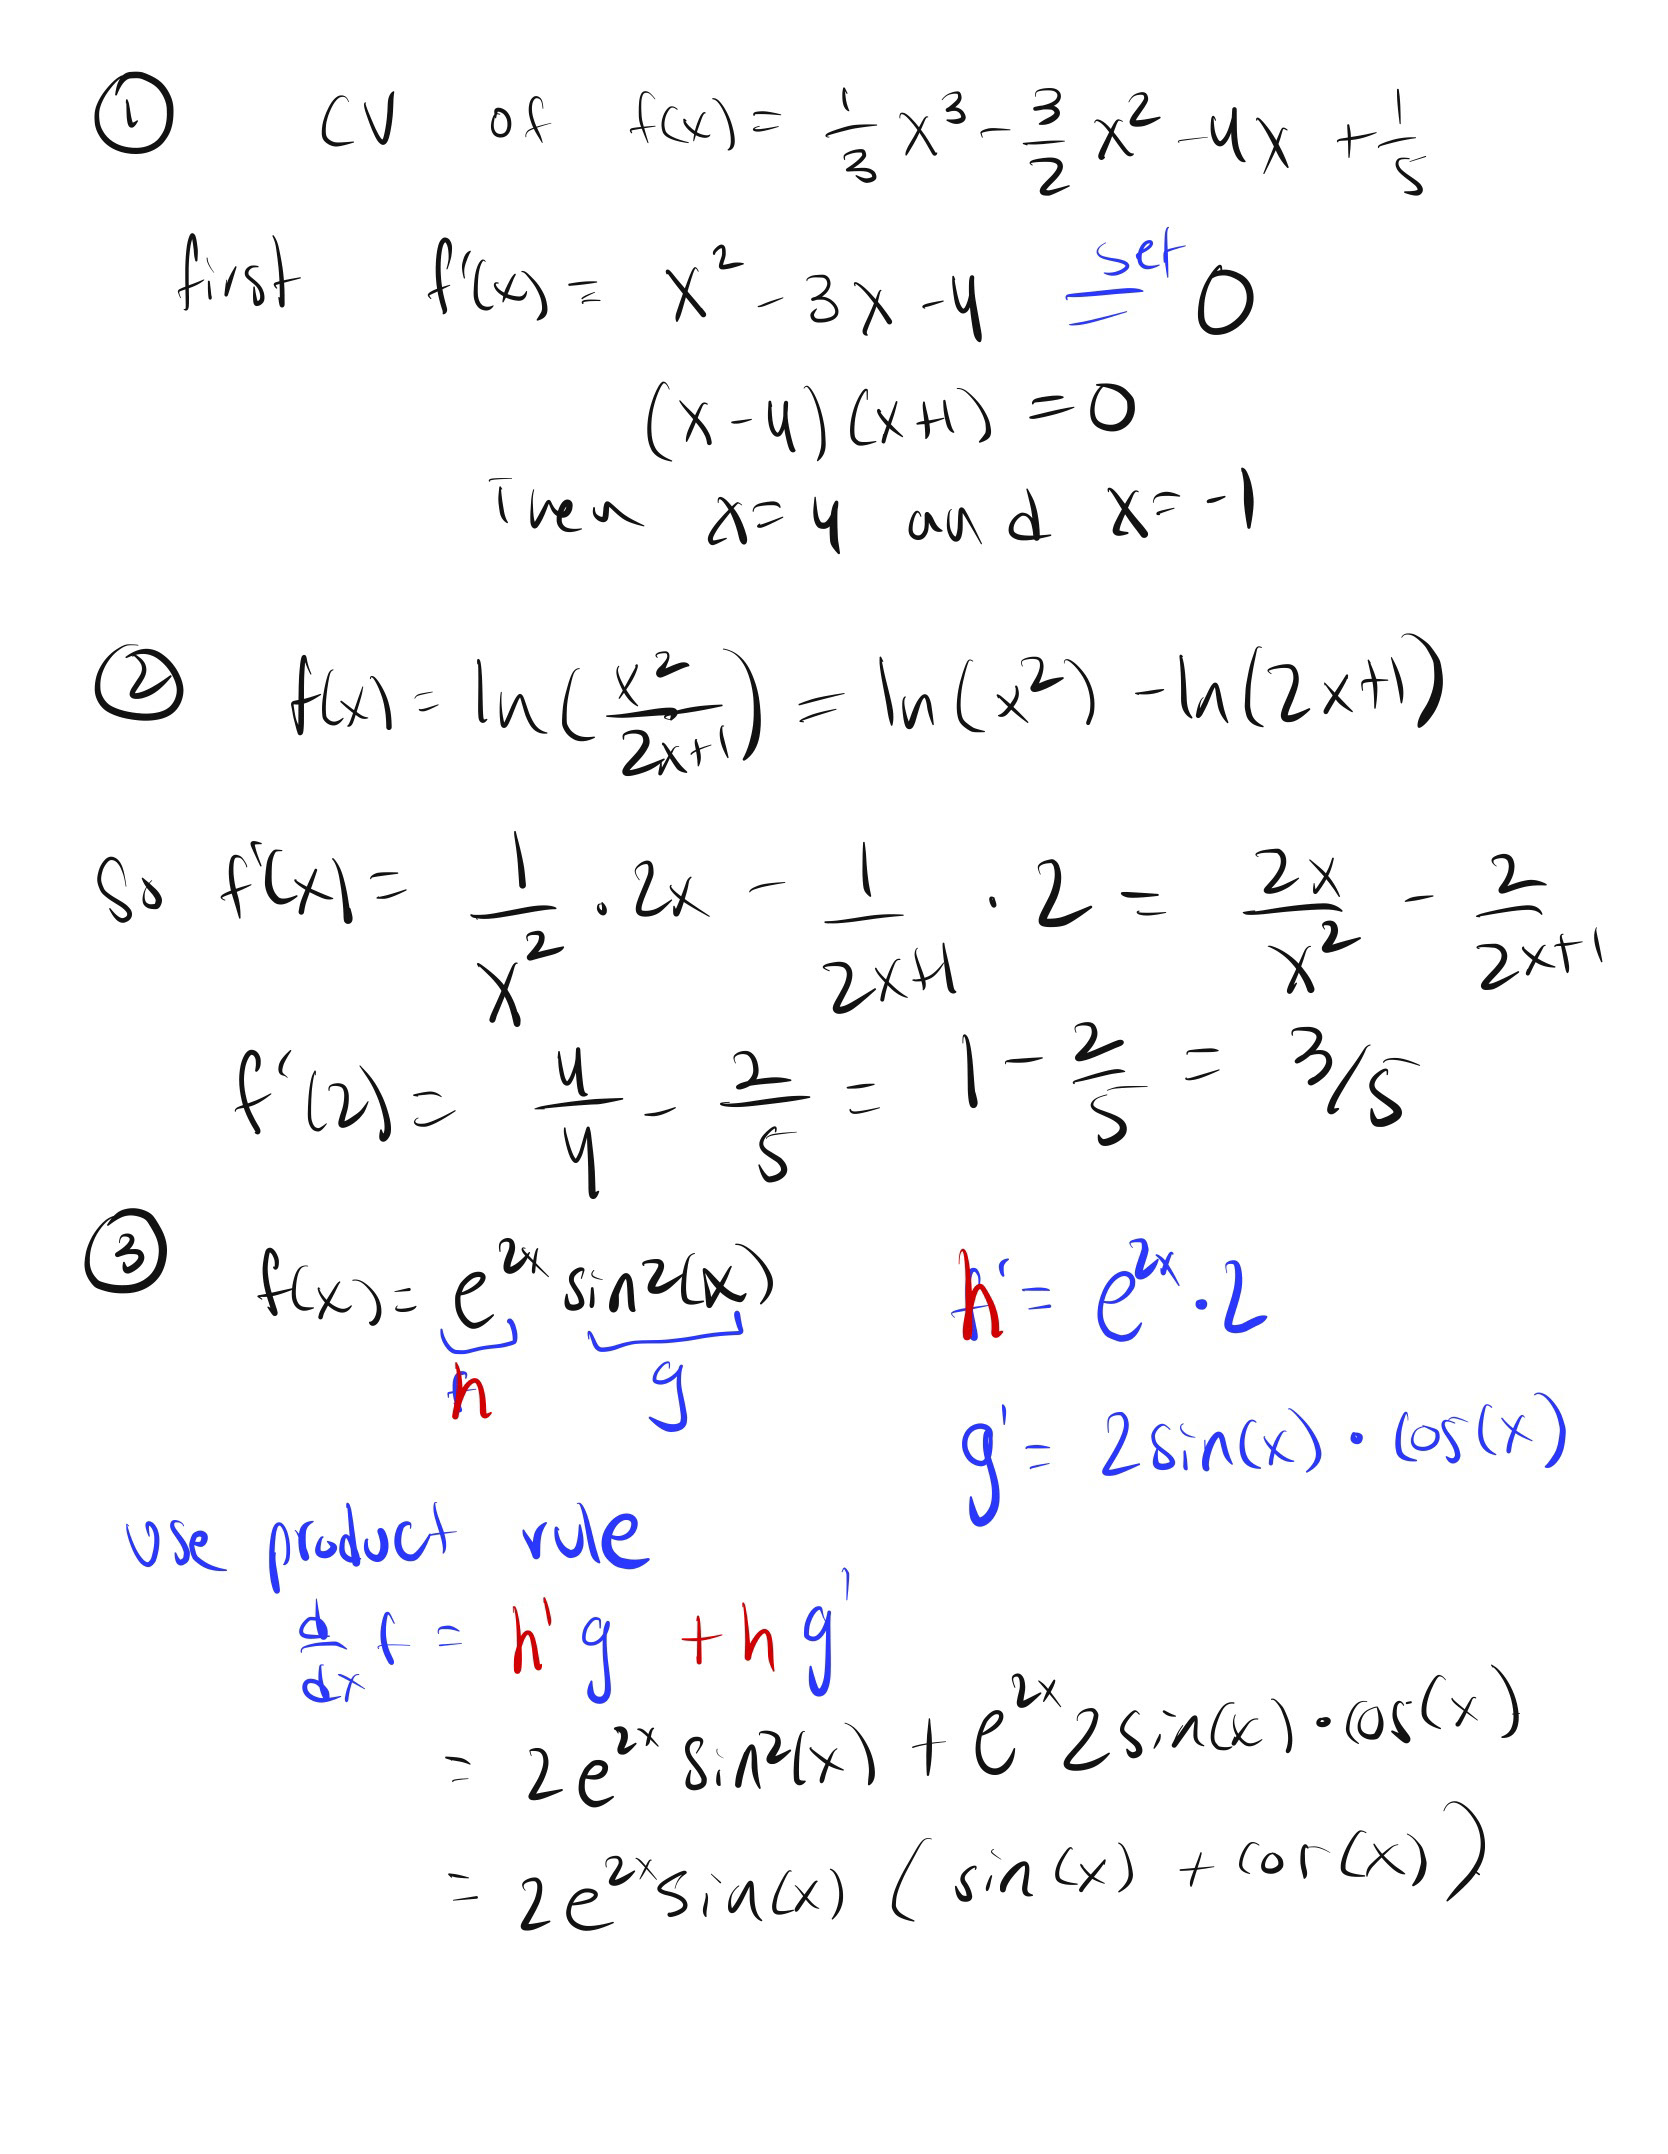 ① CV of f(x) = 1/3 x³ - 3/2 x² - 4x + 1/5
first f'(x) = x² - 3x - 4 set = 0
(x-4)(x+1) = 0
Then x=4 and x=-1
② f(x) = ln(x²/(2x+1)) = ln(x²) - ln(2x+1)
So f'(x) = 1/x² · 2x - 1/(2x+1) · 2 = 2x/x² - 2/(2x+1)
f'(2) = 4/4 - 2/5 = 1 - 2/5 = 3/5
③ f(x) = e²ˣ sin²(x) h' = e²ˣ · 2
h g
g' = 2sin(x) · cos(x)
use product rule
d/dx f = h'g + hg'
= 2e²ˣ sin²(x) + e²ˣ 2sin(x) · cos(x)
= 2e²ˣ sin(x) (sin(x) + cos(x))